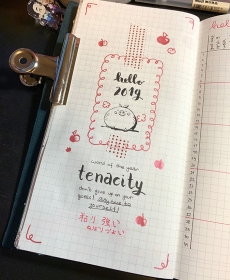 hello
2019
word of the year
tenacity
don't give up on your
goals! stay true to
yourself!
粘り強い
ねばりづよい
hello